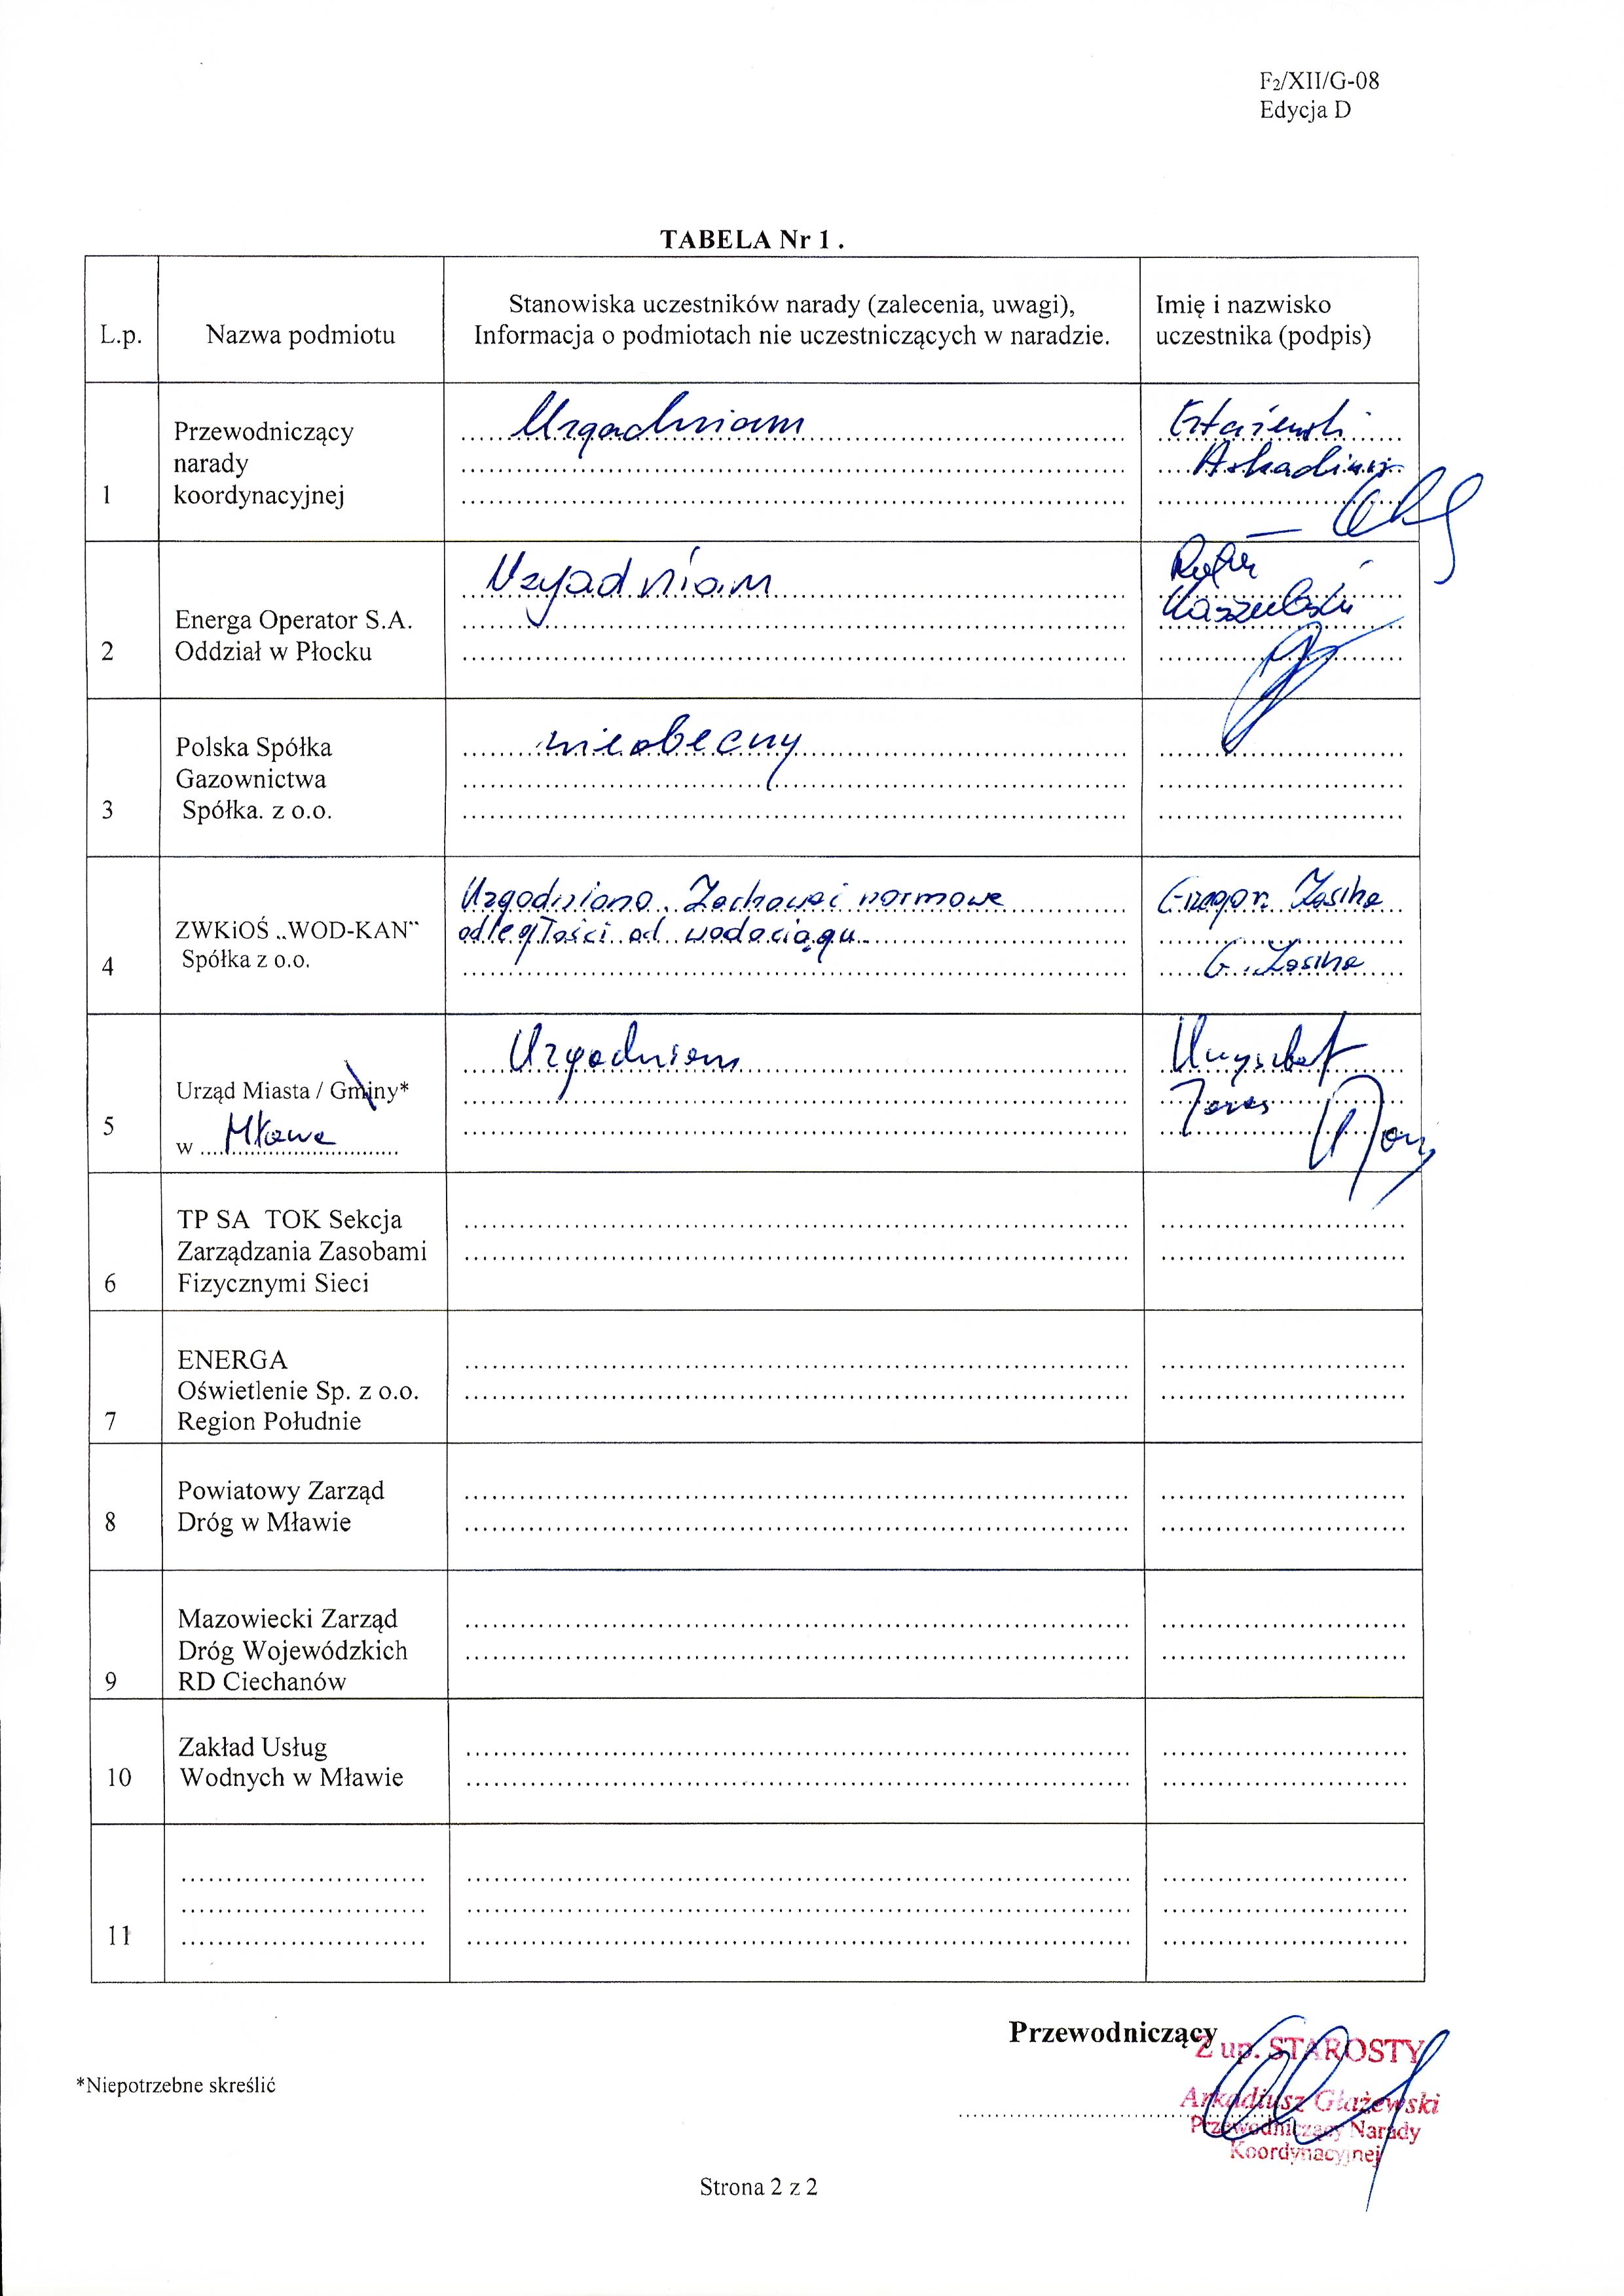 F2/XII/G-08
Edycja D
TABELA Nr 1 .
L.p.
Nazwa podmiotu
Stanowiska uczestników narady (zalecenia, uwagi),
Informacja o podmiotach nie uczestniczących w naradzie.
Imię i nazwisko
uczestnika (podpis)
1
Przewodniczący
narady
koordynacyjnej
Uzgadniam
Głażewski
Arkadiusz
2
Energa Operator S.A.
Oddział w Płocku
Uzgadniam
Rafał
Kaszubski
3
Polska Spółka
Gazownictwa
Spółka. z o.o.
nieobecny
4
ZWKiOŚ „WOD-KAN"
Spółka z o.o.
Uzgodniono. Zachować normowe
odległości od wodociągu.
Grzegorz
G.
5
Urząd Miasta / Gminy*
w Mława
Uzgadniam
Krzysztof
6
TP SA TOK Sekcja
Zarządzania Zasobami
Fizycznymi Sieci
7
ENERGA
Oświetlenie Sp. z o.o.
Region Południe
8
Powiatowy Zarząd
Dróg w Mławie
9
Mazowiecki Zarząd
Dróg Wojewódzkich
RD Ciechanów
10
Zakład Usług
Wodnych w Mławie
11
Przewodniczący
Z up. STAROSTY
Arkadiusz Głażewski
Przewodniczący Narady
Koordynacyjnej
*Niepotrzebne skreślić
Strona 2 z 2